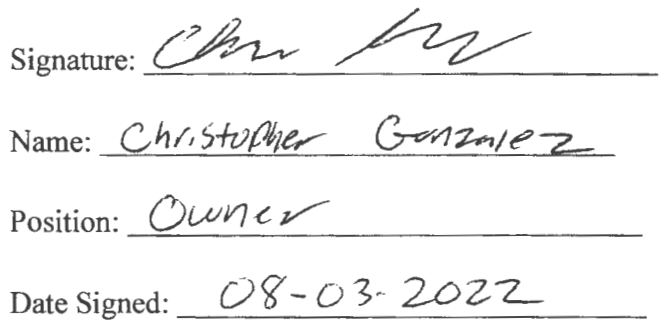 Signature:
Name: Christopher Gonzalez
Position: Owner
Date Signed: 08-03-2022